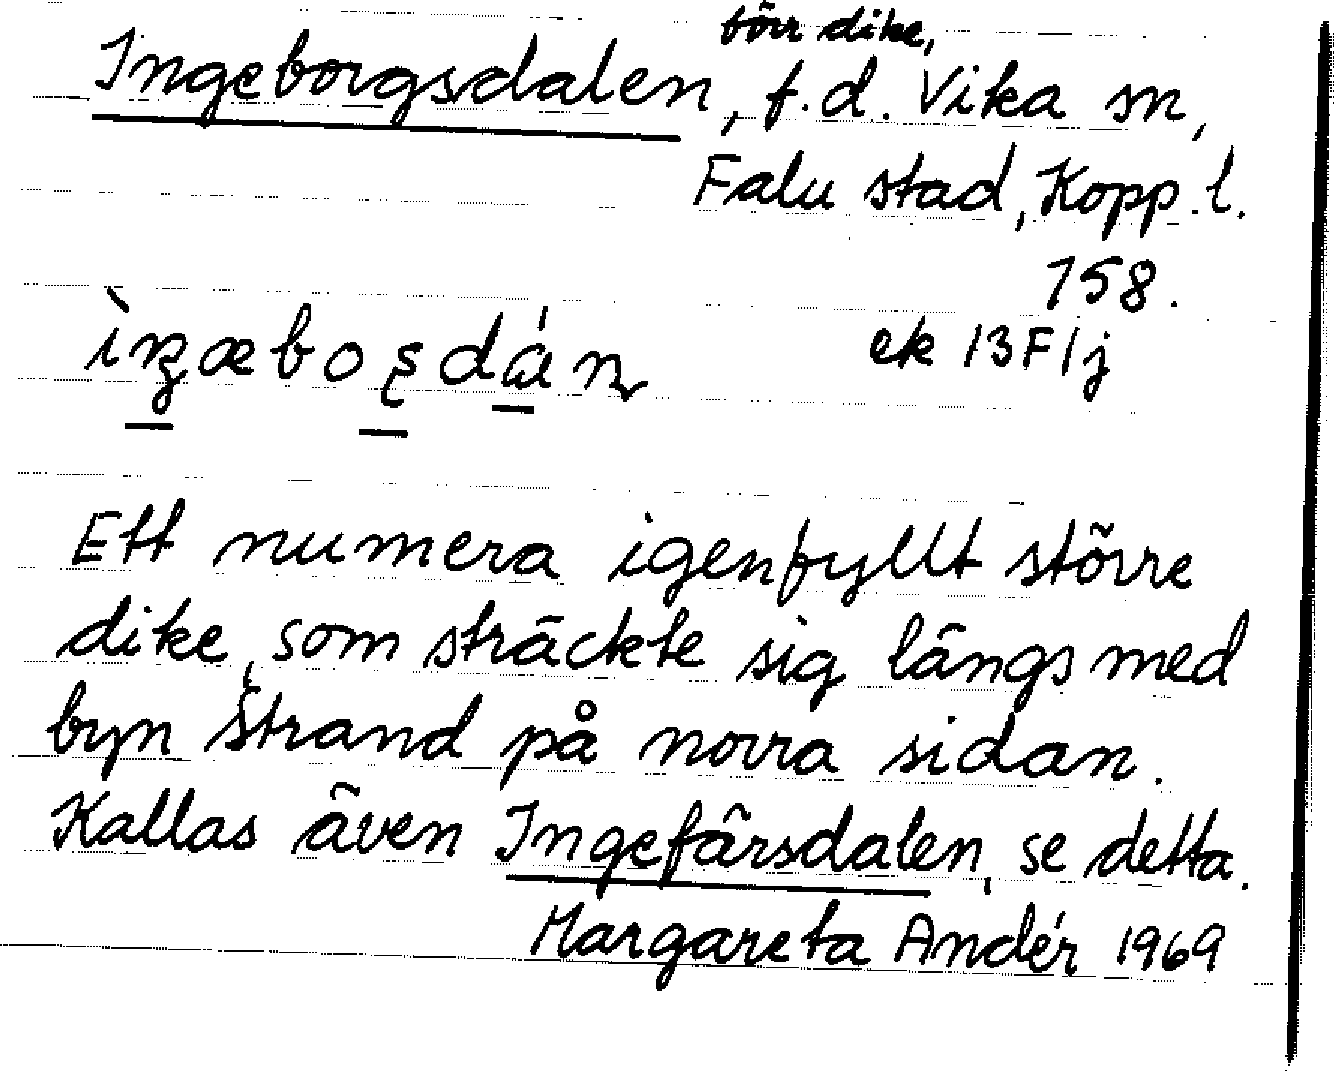 förr dike,
Ingeborgsdalen, f.d. Vika sn,
Falu stad, Kopp. l.
158.
ek 13F1j
Ett numera igenfyllt större
dike, som sträckte sig längs med
byn Strand på norra sidan.
Kallas även Ingefärsdalen, se detta.
Margareta Andér 1969